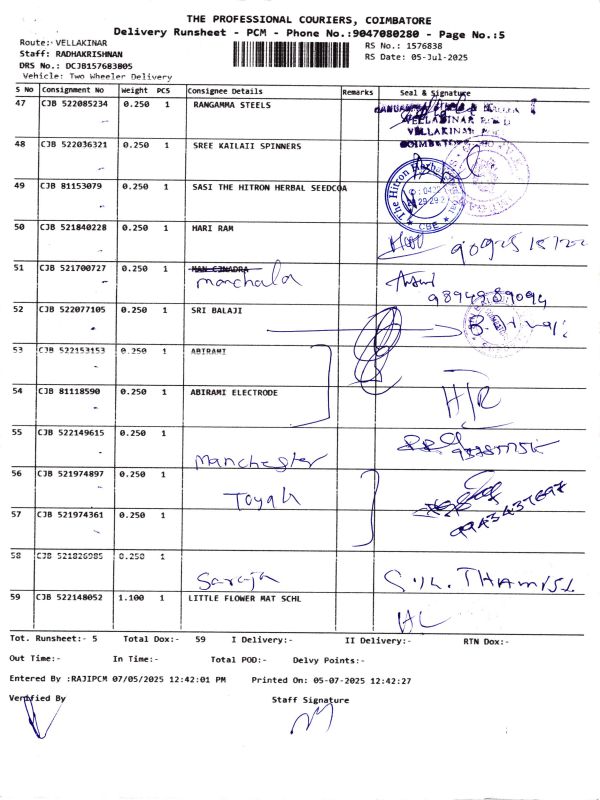 THE PROFESSIONAL COURIERS, COIMBATORE
Delivery Runsheet - PCM - Phone No.:9047080280 - Page No.:5
Route:- VELLAKINAR
RS No.: 1576838
Staff: RADHAKRISHNAN
RS Date: 05-Jul-2025
DRS No.: DCJB157683805
Vehicle: Two Wheeler Delivery
S No Consignment No Weight PCS Consignee Details Remarks Seal & Signature
47 CJB 522085234 0.250 1 RANGAMMA STEELS
VELLAKINAR
48 CJB 522036321 0.250 1 SREE KAILAII SPINNERS
49 CJB 81153079 0.250 1 SASI THE HITRON HERBAL SEEDCOA
The Hitron Herbal
CBE
50 CJB 521840228 0.250 1 HARI RAM
51 CJB 521700727 0.250 1 MAN CINADRA
manchala
9894989094
52 CJB 522077105 0.250 1 SRI BALAJI
53 CJB 522153153 0.250 1 ABIRAMI
54 CJB 81118590 0.250 1 ABIRAMI ELECTRODE
H/R
55 CJB 522149615 0.250 1
Manchester
56 CJB 521974897 0.250 1
Toyah
57 CJB 521974361 0.250 1
9943437697
58 CJB 521826985 0.250 1
Saroja
59 CJB 522148052 1.100 1 LITTLE FLOWER MAT SCHL
Tot. Runsheet:- 5 Total Dox:- 59 I Delivery:- II Delivery:- RTN Dox:-
Out Time:- In Time:- Total POD:- Delvy Points:-
Entered By :RAJIPCM 07/05/2025 12:42:01 PM Printed On: 05-07-2025 12:42:27
Verified By Staff Signature